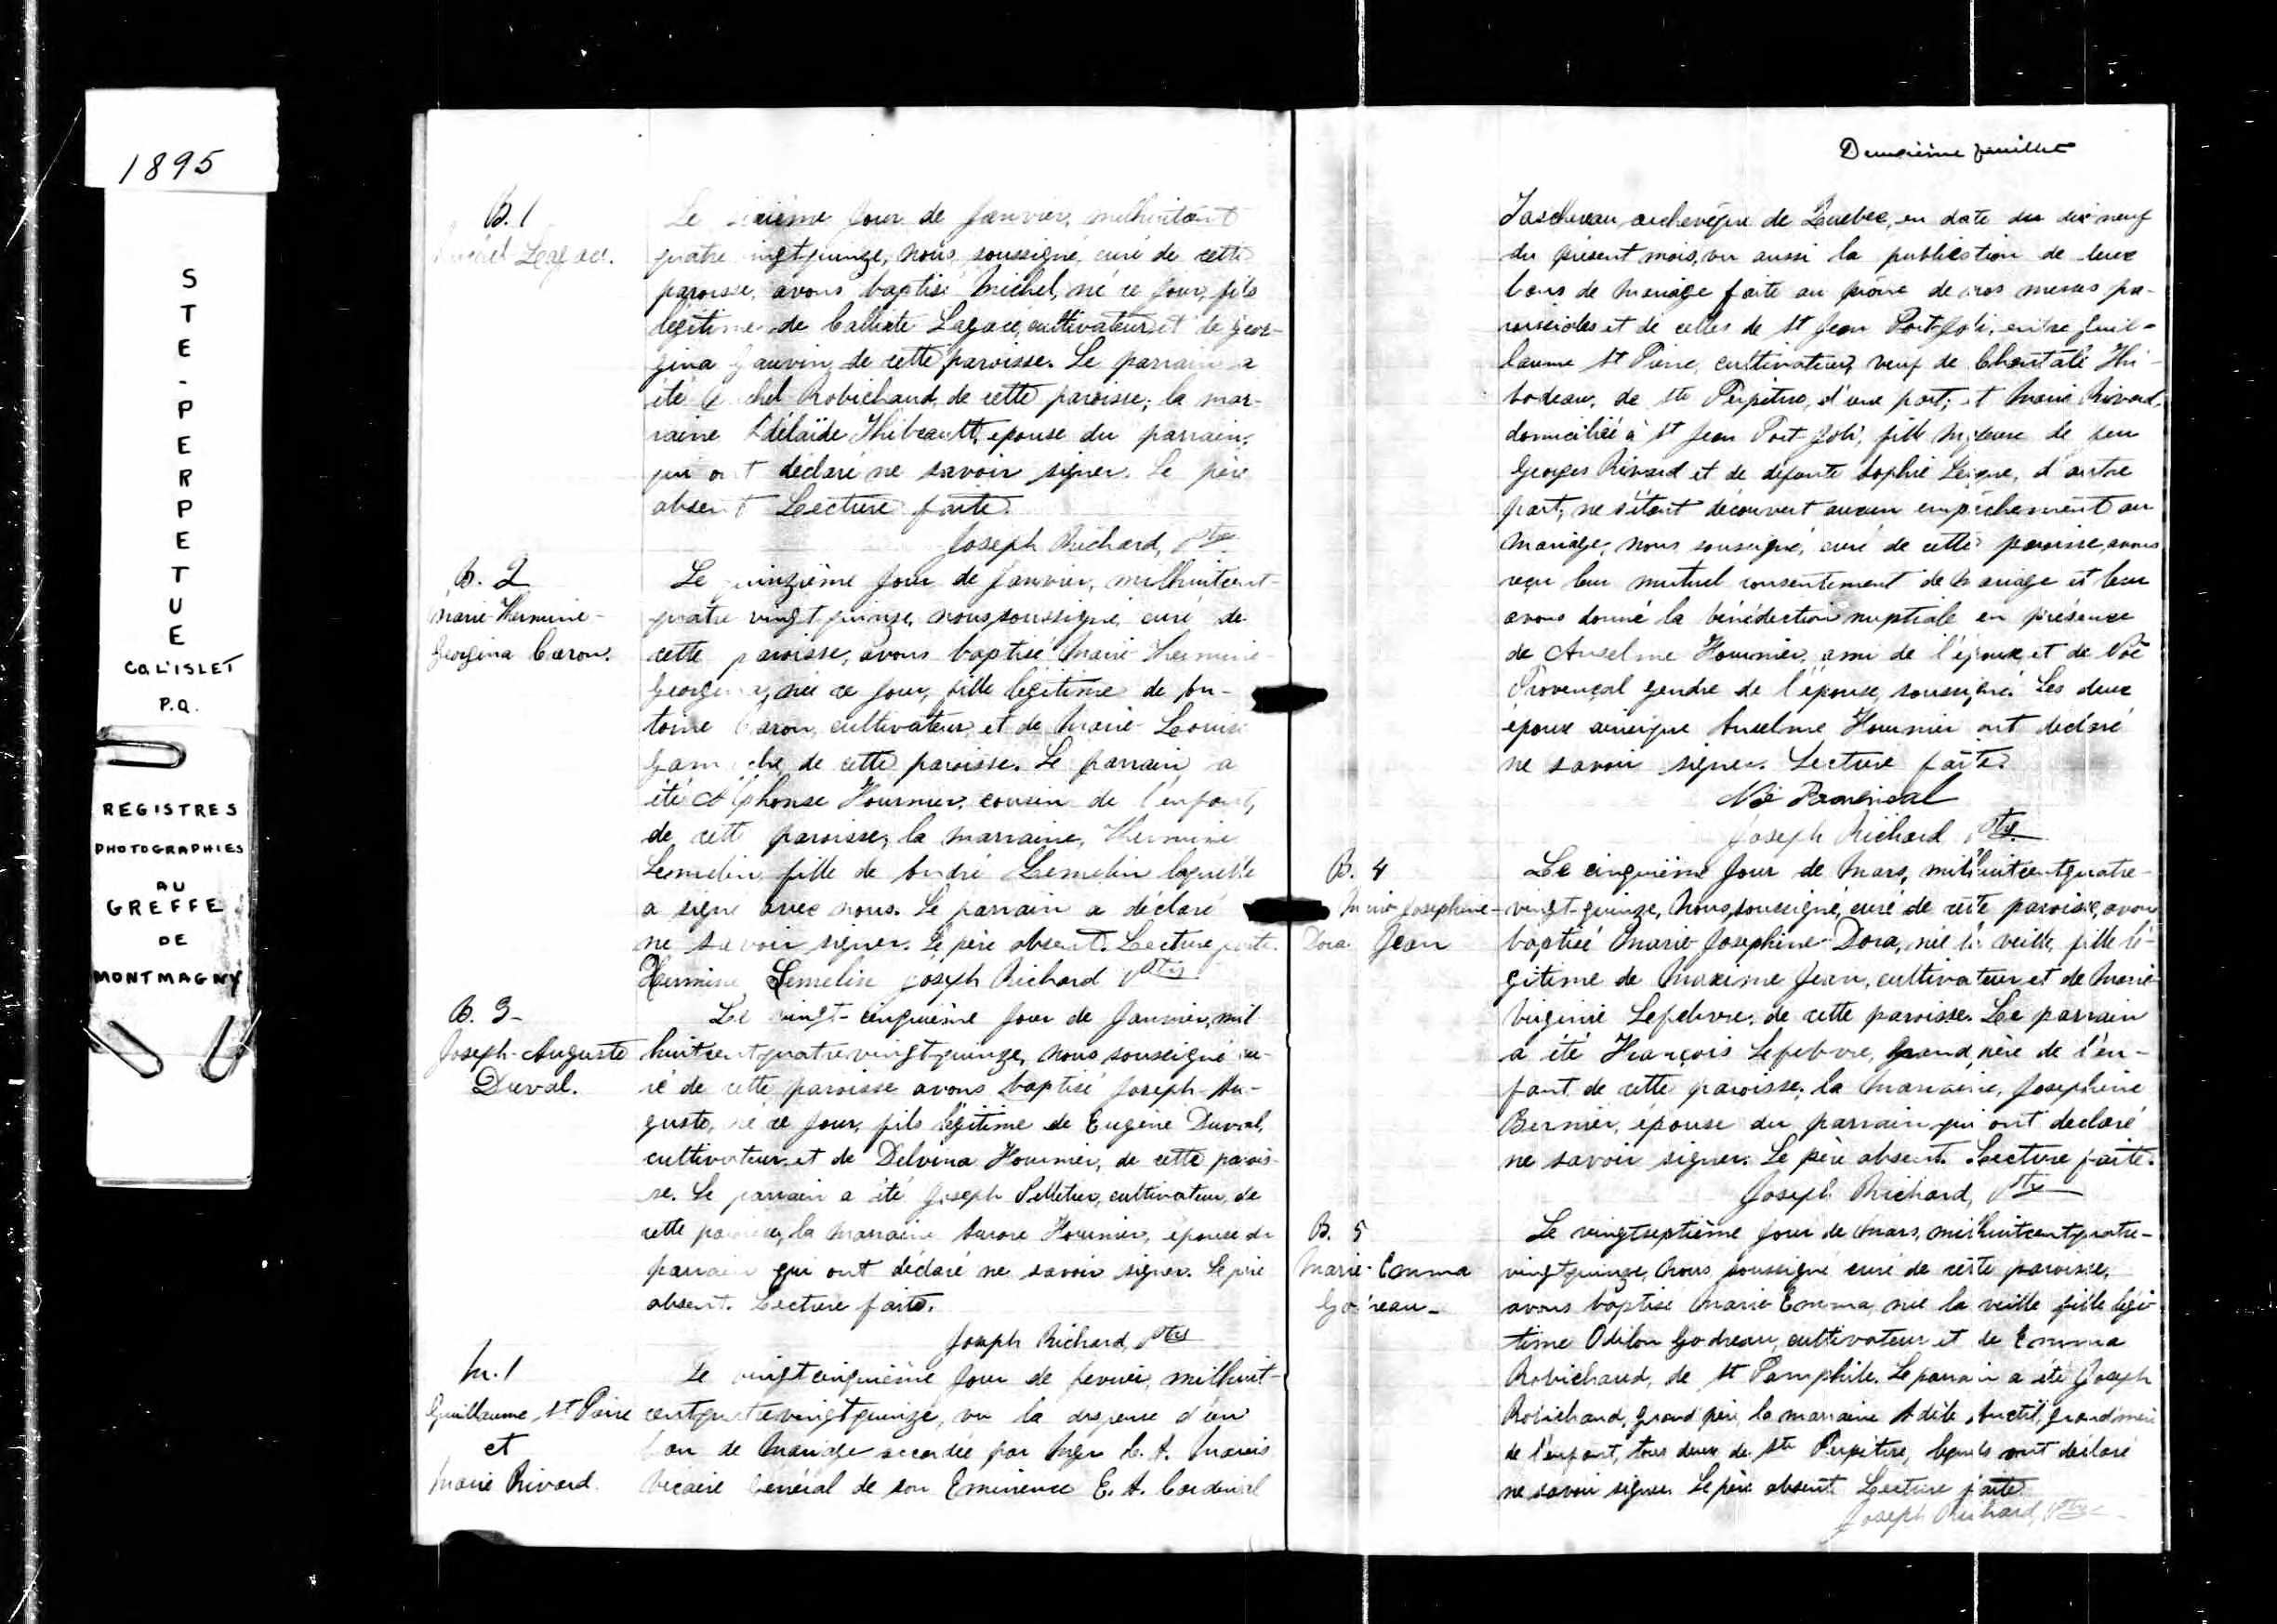 1895
STE-PERPETUE
CO. L'ISLET
P.Q.
REGISTRES
PHOTOGRAPHIES
AU
GREFFE
DE
MONTMAGNY
B. 1
Legacé.
Le jour de Janvier, milhuitcent
quatre vingt quinze, nous, soussigné, curé de cette
paroisse, avons baptisé Michel, né ce jour, fils
légitime de Callixte Lagacé, cultivateur et de Geor-
gina Gauvin, de cette paroisse. Le parrain a
été Robichaud, de cette paroisse; la mar-
raine Adélaïde Thibeault, épouse du parrain,
qui ont déclaré ne savoir signer. Le père
absent Lecture faite.
Joseph Richard, Ptre
B. 2
Marie-Hermine-
Georgina Caron.
Le quinzième jour de Janvier, milhuitcent-
quatre vingt quinze, nous soussigné, curé de
cette paroisse, avons baptisé Marie-Hermine-
Georgina, née ce jour, fille légitime de An-
toine Caron, cultivateur et de Marie-Louise
Gamache, de cette paroisse. Le parrain a
été Alphonse Fournier, cousin de l'enfant,
de cette paroisse, la marraine, Hermine
Lemelin, fille de André Lemelin laquelle
a signé avec nous. Le parrain a déclaré
ne savoir signer. Le père absent. Lecture faite.
Hermine Lemelin Joseph Richard Ptre
B. 3-
Joseph-Auguste
Duval.
Le vingt-cinquième jour de Janvier, mil
huitcentquatrevingtquinze, nous, soussigné cu-
ré de cette paroisse avons baptisé Joseph-Au-
guste, né ce jour, fils légitime de Eugène Duval,
cultivateur et de Delvina Fournier, de cette parois-
se. Le parrain a été Joseph Pelletier, cultivateur, de
cette paroisse, la marraine Aurore Fournier, épouse du
parrain qui ont déclaré ne savoir signer. Le père
absent. Lecture faite.
Joseph Richard, Ptre
M. 1
Guillaume St Pierre
et
Marie Rivard.
Le vingtcinquième jour de fevrier, milhuit-
centquatrevingtquinze, vu la dispense d'un
ban de Mariage accordée par Mgr C. A. Marois
Vicaire Général de son Eminence E. A. Cardinal
Deuxième feuillet
Taschereau, archevêque de Quebec, en date du dix neuf
du présent mois, vu aussi la publication de deux
bans de Mariage faite au prône de nos messes pa-
roissiales et de celles de St Jean Port-Joli, entre Guil-
laume St Pierre, cultivateur, veuf de Chantale Thi-
bodeau, de Ste Perpétue, d'une part; et Marie Rivard,
domiciliée à St Jean Port-Joli, fille majeure de feu
Georges Rivard et de défunte Sophie d'autre
part; ne s'étant découvert aucun empêchement au
Mariage, nous soussigné, curé de cette paroisse, avons
reçu leur mutuel consentement de Mariage et leur
avons donné la bénédiction nuptiale en présence
de Anselme Fournier, ami de l'époux, et de Noë
Provençal gendre de l'épouse, soussigné. Les deux
époux ainsique Anselme Fournier ont déclaré
ne savoir signer. Lecture faite.
Noë Provencal
Joseph Richard Ptre
B. 4
Marie Josephine-
Dora Jean
Le cinquième jour de Mars, milhuitcentquatre-
vingt-quinze, Nous, soussigné, curé de cette paroisse, avons
baptisé Marie-Josephine-Dora, née la veille, fille lé-
gitime de Maxime Jean, cultivateur, et de Marie
Virginie Lefebvre, de cette paroisse. Le parrain
a été François Lefebvre, grand père de l'en-
fant, de cette paroisse, la Marraine, Josephine
Bernier, épouse du parrain qui ont déclaré
ne savoir signer. Le père absent. Lecture faite.
Joseph Richard, Ptre
B. 5
Marie-Emma
Godreau-
Le vingtseptième jour de Mars, milhuitcentquatre-
vingtquinze, Nous, soussigné curé de cette paroisse,
avons baptisé Marie-Emma, née la veille fille légi-
time Odilon Godreau, cultivateur et de Emma
Robichaud, de St Pamphile. Le parrain a été Joseph
Robichaud, grand père, la marraine Adèle Anctil, grand'mère
de l'enfant, tous deux de Ste Perpétue, lequels ont déclaré
ne savoir signer. Le père absent. Lecture faite.
Joseph Richard, Ptre